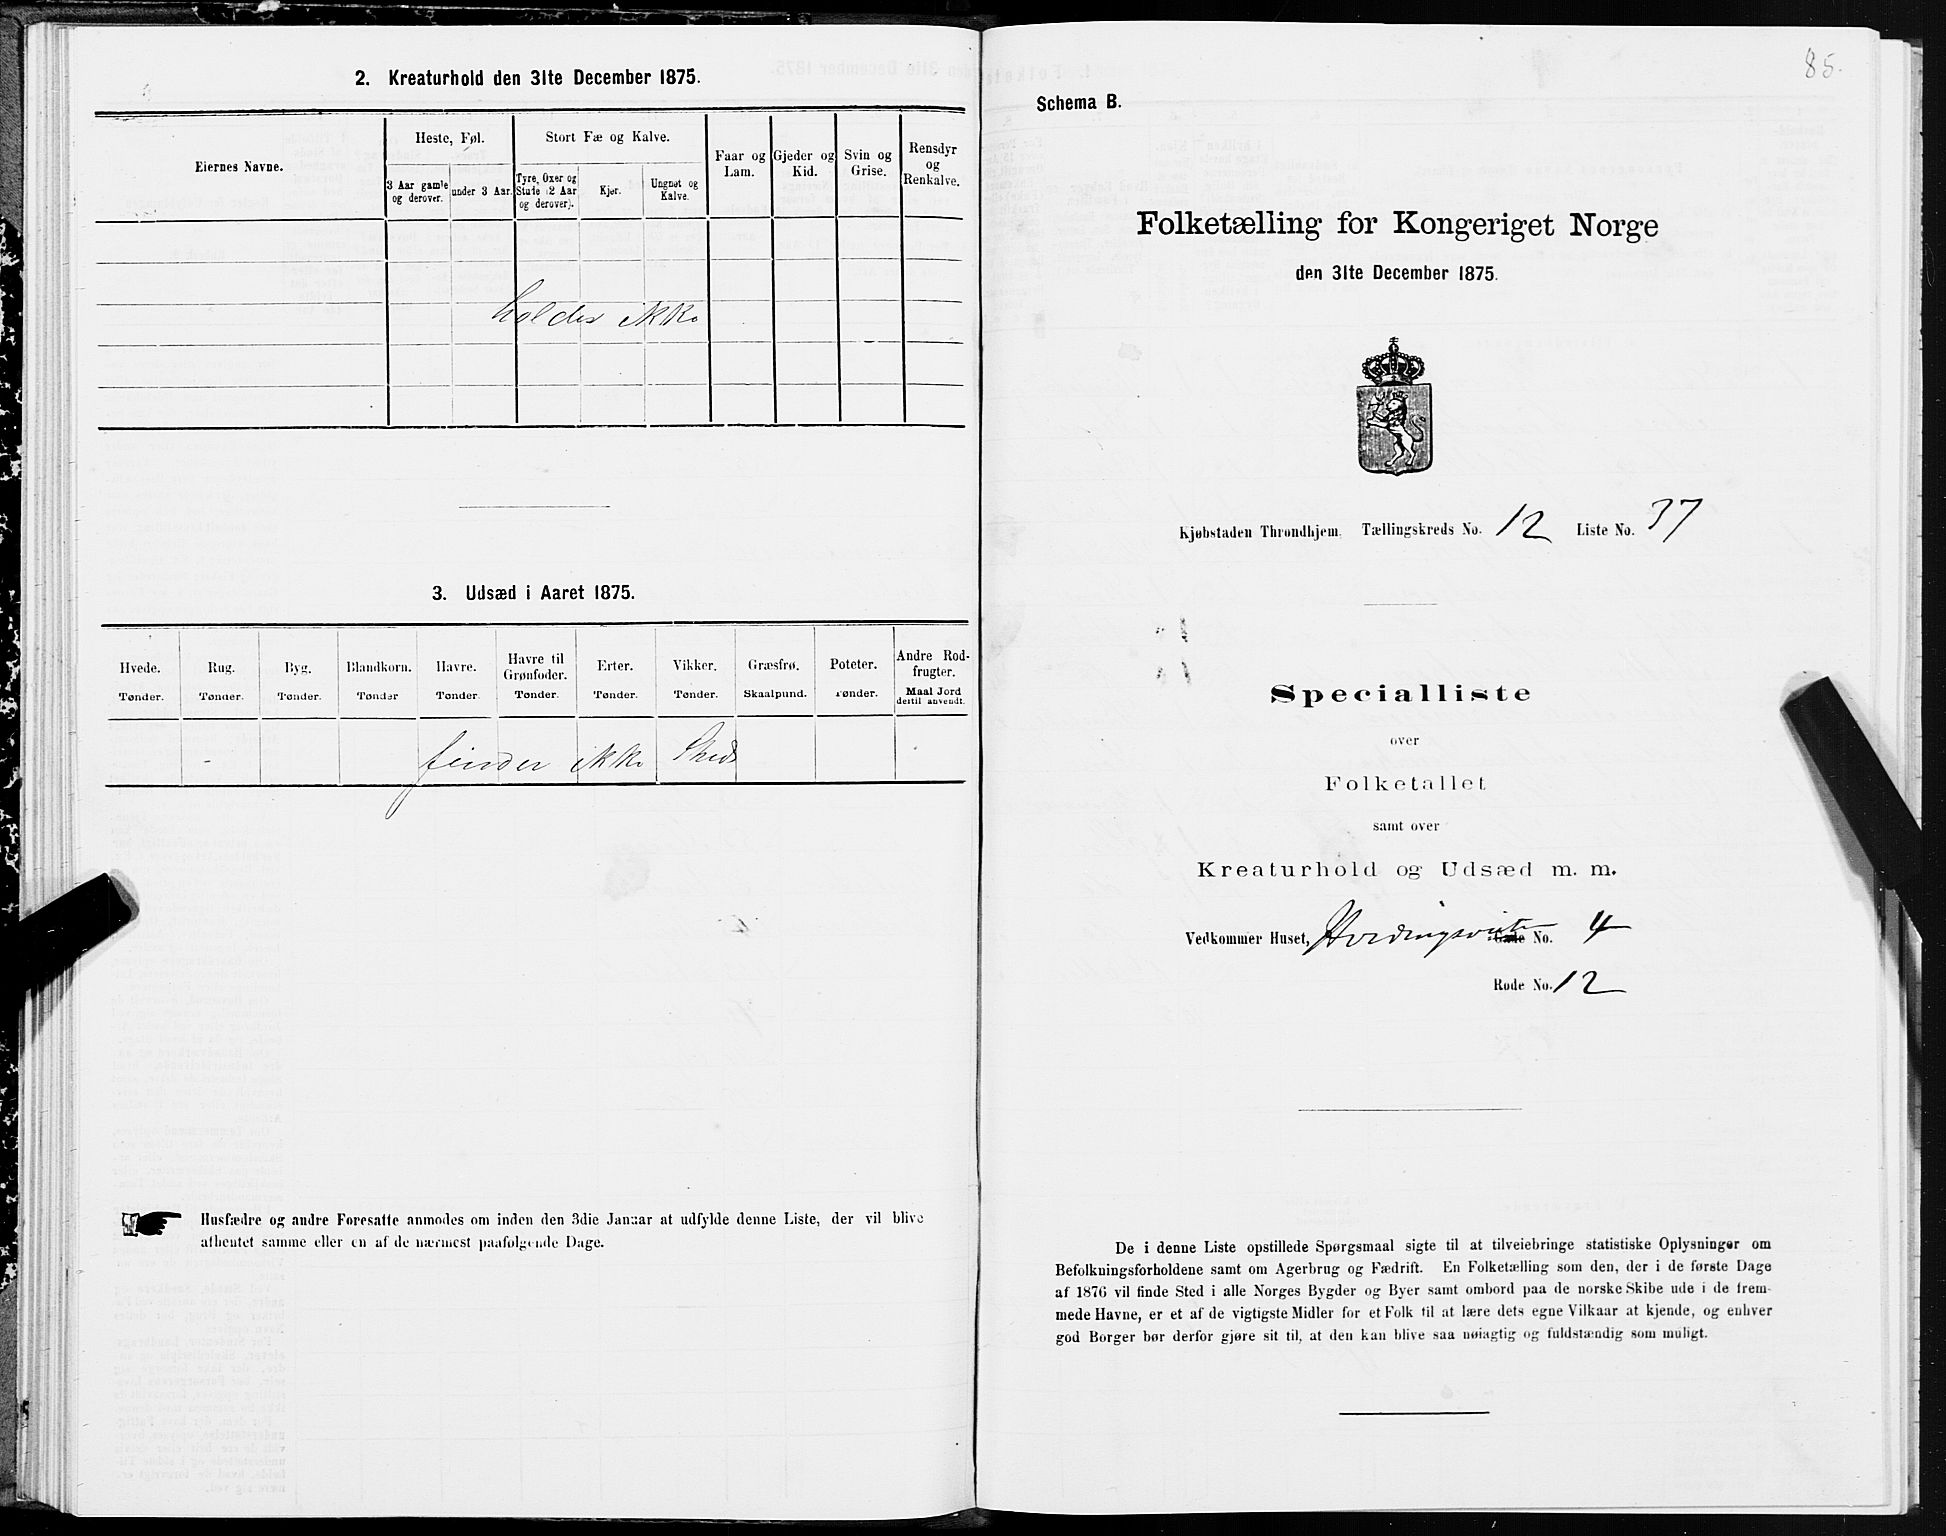 2. Kreaturhold den 31te December 1875.
Eiernes Navne.
Heste, Føl.
Stort Fæ og Kalve.
Faar og Lam.
Gjeder og Kid.
Svin og Grise.
Rensdyr og Renkalve.
3 Aar gamle og derover.
under 3 Aar.
Tyre, Oxer og Stude (2 Aar og derover).
Kjør.
Ungnøt og Kalve.
holdes ikke
3. Udsæd i Aaret 1875.
Hvede. Rug. Byg. Blandkorn. Havre. Havre til Grønfoder. Erter. Vikker. Græsfrø. Poteter. Andre Rodfrugter.
Tønder. Tønder. Tønder. Tønder Tønder. Tønder. Tønder. Tønder. Skaalpund. Tønder. Maal Jord dertil anvendt.
finder ikke Sted
Husfædre og andre Foresatte anmodes om inden den 3die Januar at udfylde denne Liste, der vil blive
afhentet samme eller en af de nærmest paafølgende Dage.
85.
Schema B.
Folketælling for Kongeriget Norge
den 31te December 1875.
Kjøbstaden Throndhjem. Tællingskreds No. 12 Liste No. 37
Specialliste
over
Folketallet
samt over
Kreaturhold og Udsæd m. m.
Vedkommer Huset, Gade No. 4
Rode No. 12
De i denne Liste opstillede Spørgsmaal sigte til at tilveiebringe statistiske Oplysninger om
Befolkningsforholdene samt om Agerbrug og Fædrift. En Folketælling som den, der i de første Dage
af 1876 vil finde Sted i alle Norges Bygder og Byer samt ombord paa de norske Skibe ude i de frem-
mede Havne, er et af de vigtigste Midler for et Folk til at lære dets egne Vilkaar at kjende, og enhver
god Borger bør derfor gjøre sit til, at den kan blive saa nøiagtig og fuldstændig som muligt.